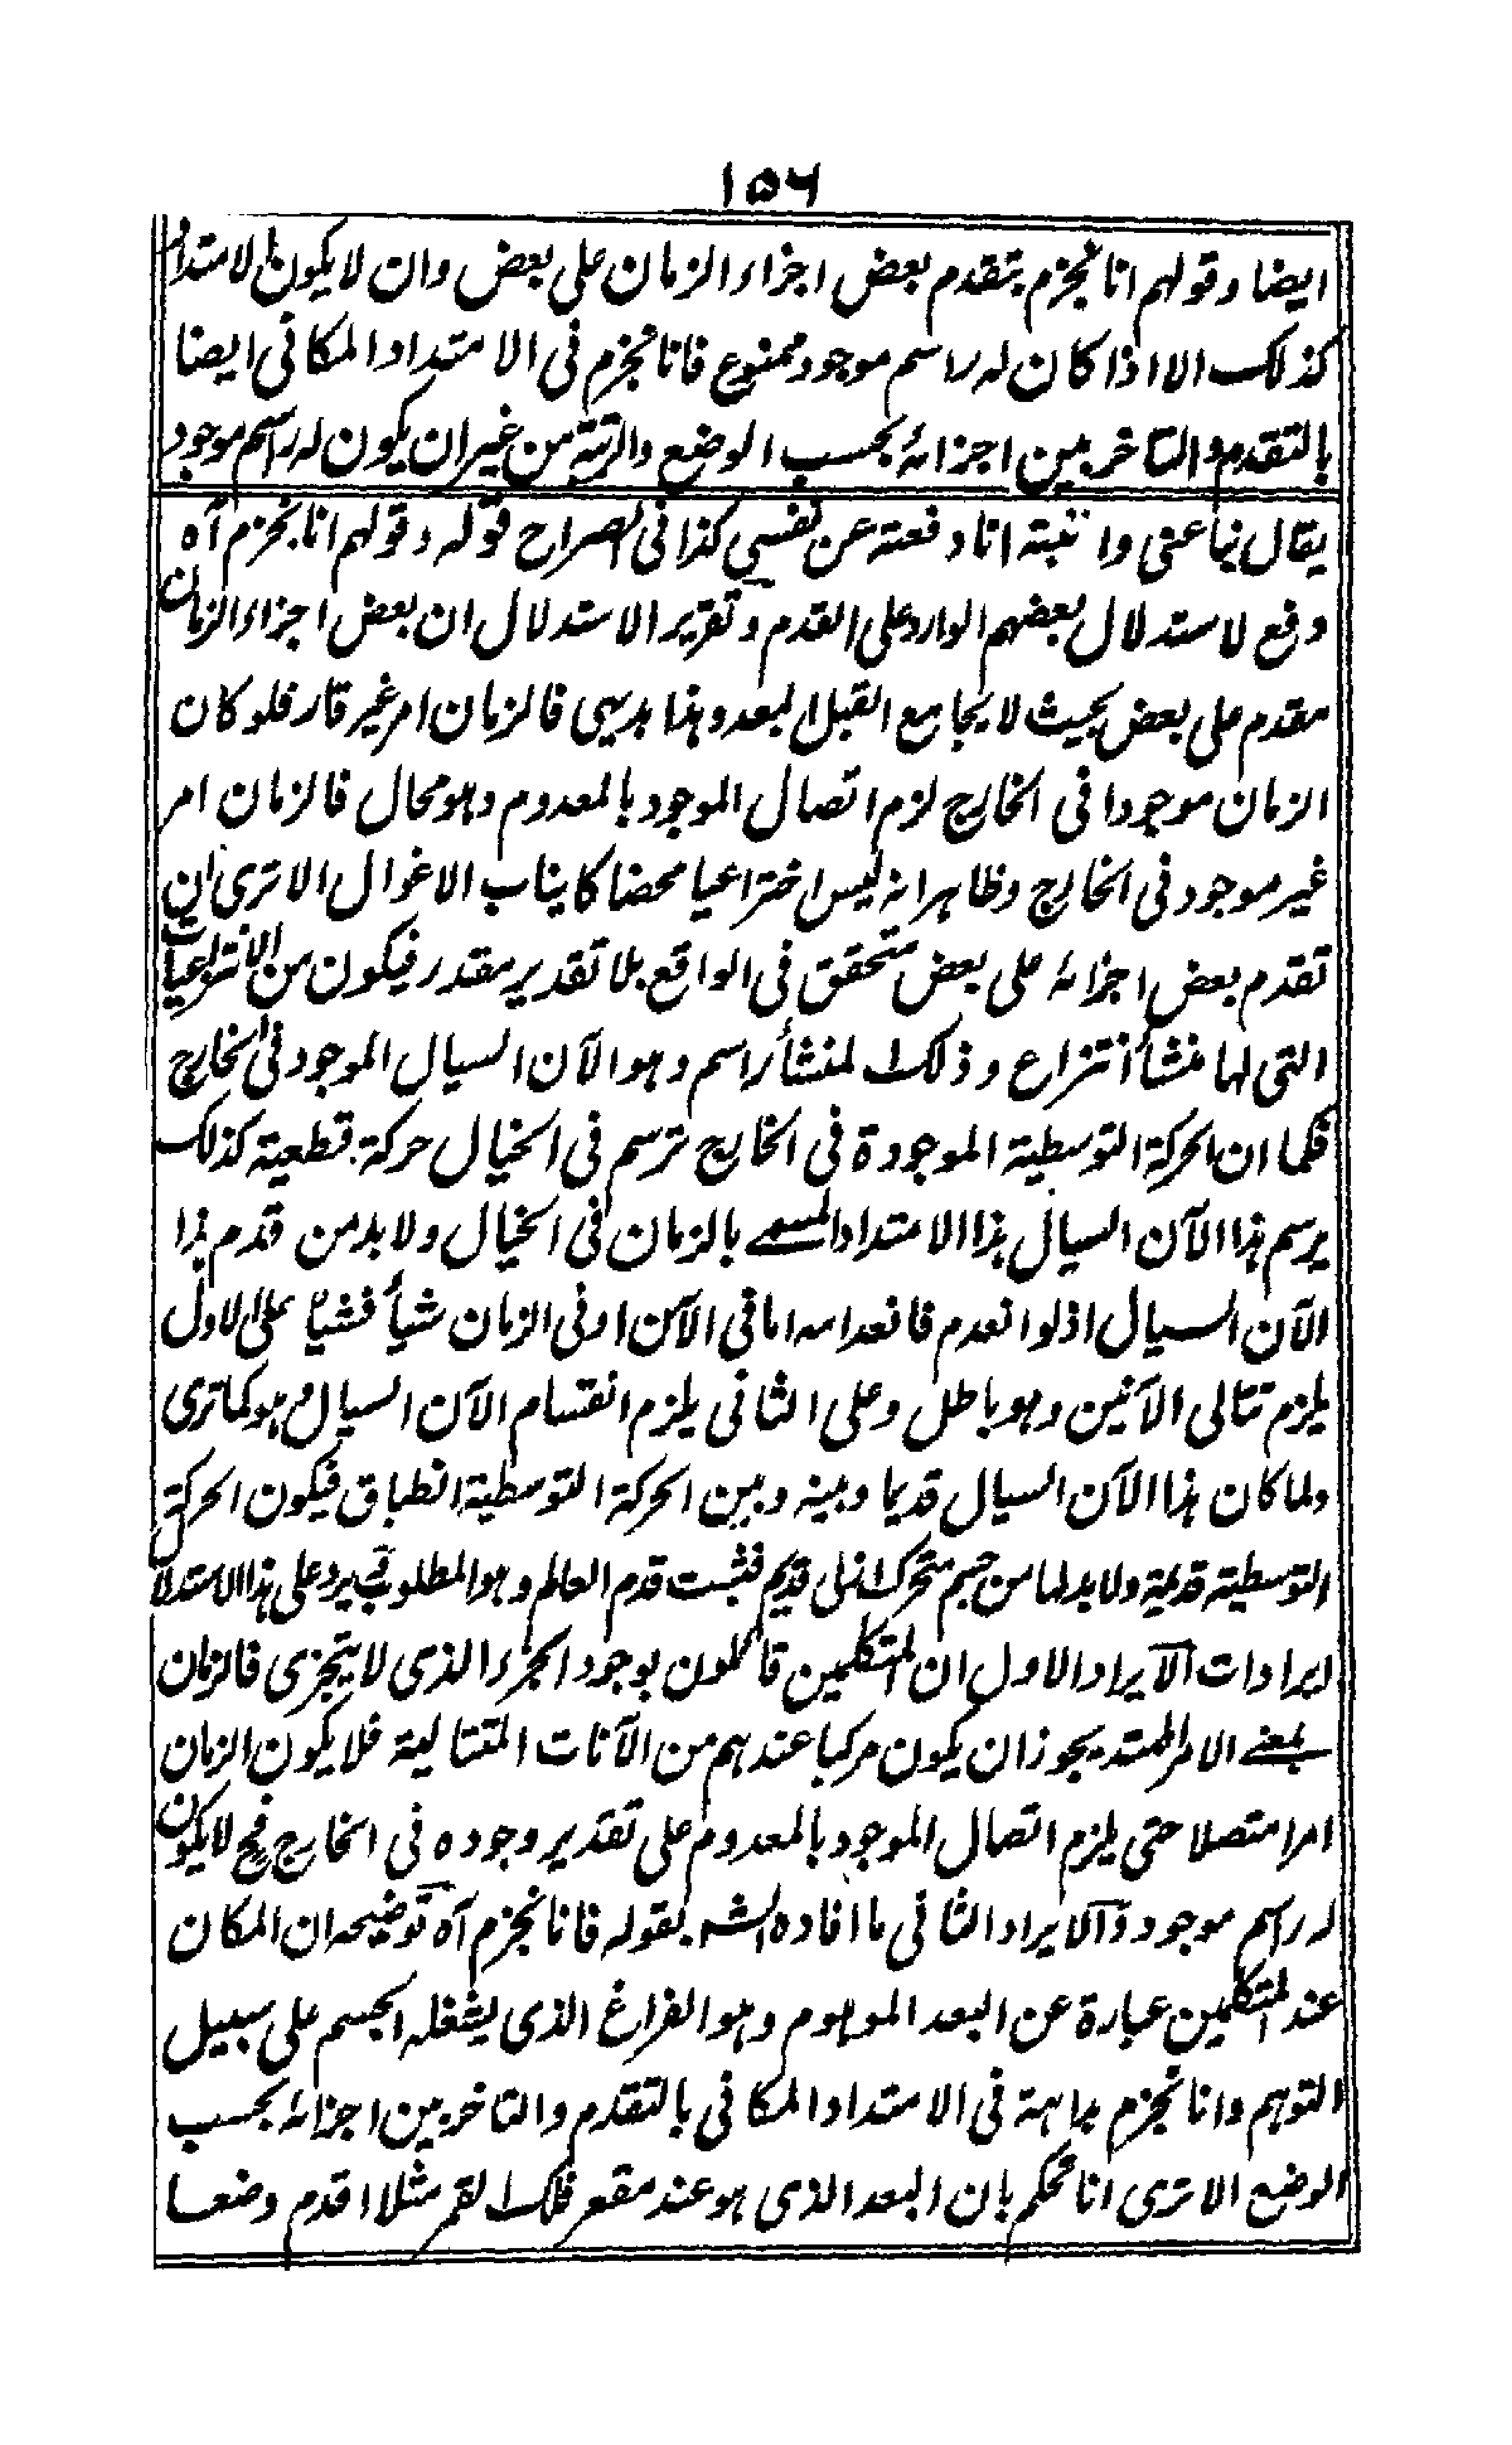 ١٥٦
ايضا وقولهم انا نجزم بتقدم بعض اجزاء الزمان على بعض وان لا يكون الامتداد
كذلك الا اذا كان له راسم موجود ممنوع فانا نجزم فى الامتداد المكانى ايضا
بالتقدم والتاخر بين اجزائه بحسب الوضع والرتبة من غير ان يكون له راسم موجود
يقال نبا عنى وا نبته انا دفعته عن نفسى كذا فى الصراح قوله وقولهم انا نجزم آه
دفع لاستدلال بعضهم الوارد على القدم وتقرير الاستدلال ان بعض اجزاء الزمان
مقدم على بعض بحيث لا يجامع القبل البعد وهذا بديهى فالزمان امر غير قار فلو كان
الزمان موجودا فى الخارج لزم اتصال الموجود بالمعدوم وهو محال فالزمان امر
غير موجود فى الخارج وظاهر انه ليس اختراعيا محضا كانياب الاغوال الا ترى ان
تقدم بعض اجزائه على بعض متحقق فى الواقع بلا تقدير مقدر فيكون من الانتزاعيات
التى لها منشأ انتزاع وذلك المنشأ راسم وهو الآن السيال الموجود فى الخارج
فكما ان الحركة التوسطية الموجودة فى الخارج ترسم فى الخيال حركة قطعية كذلك
يرسم هذا الآن السيال هذا الامتداد المسمى بالزمان فى الخيال ولا بد من قدم هذا
الآن السيال اذ لو انعدم فانعدامه اما فى الآن او فى الزمان شيأ فشيأ على الاول
يلزم تتالى الآنين وهو باطل وعلى الثانى يلزم انقسام الآن السيال وهو كما ترى
ولما كان هذا الآن السيال قديما وبينه وبين الحركة التوسطية انطباق فيكون الحركة
التوسطية قديمة ولا بد لها من جسم متحرك ازلى قديم فثبت قدم العالم وهو المطلوب فيرد على هذا الاستدلال
ايرادات الايراد الاول ان المتكلمين قائلون بوجود الجزء الذى لا يتجزى فالزمان
بمعنى الامر الممتد يجوز ان يكون مركبا عندهم من الآنات المتتالية فلا يكون الزمان
امرا متصلا حتى يلزم اتصال الموجود بالمعدوم على تقدير وجوده فى الخارج فح لا يكون
له راسم موجود والايراد الثانى ما افاده الشه بقوله فانا نجزم آه توضيحه ان المكان
عند المتكلمين عبارة عن البعد الموهوم وهو الفراغ الذى يشغله الجسم على سبيل
التوهم وانا نجزم بداهة فى الامتداد المكانى بالتقدم والتاخر بين اجزائه بحسب
الوضع الا ترى انا نحكم بان البعد الذى هو عند مقعر فلك القمر مثلا اقدم وضعا